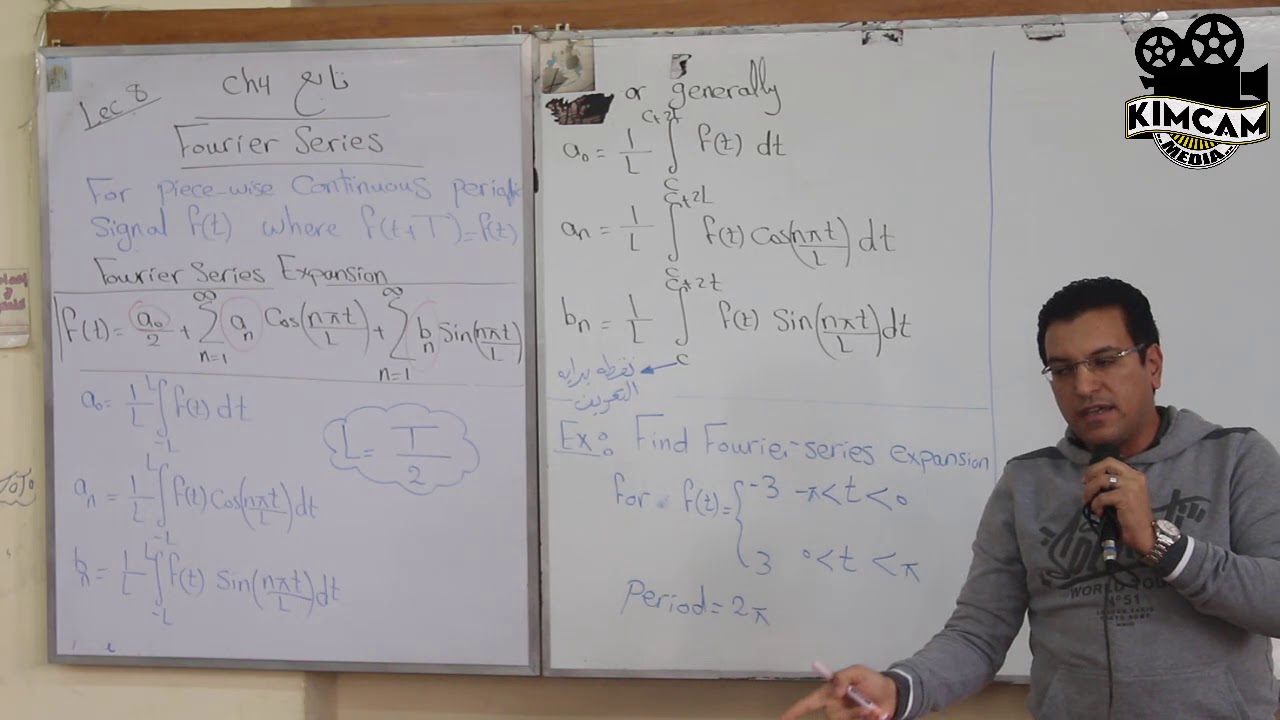 Lec 8
Ch4 تابع
Fourier Series
For piece-wise Continuous periodic
Signal f(t) where f(t+T)=f(t)
Fourier Series Expansion
f(t) = a₀/2 + ∑_{n=1}^{∞} aₙ Cos(nπt/L) + ∑_{n=1}^{∞} bₙ Sin(nπt/L)
a₀ = 1/L ∫_{-L}^{L} f(t) dt
L = T/2
aₙ = 1/L ∫_{-L}^{L} f(t) Cos(nπt/L) dt
bₙ = 1/L ∫_{-L}^{L} f(t) Sin(nπt/L) dt
or generally
a₀ = 1/L ∫_{c}^{c+2L} f(t) dt
aₙ = 1/L ∫_{c}^{c+2L} f(t) Cos(nπt/L) dt
bₙ = 1/L ∫_{c}^{c+2t} f(t) Sin(nπt/L) dt
نقطه بدايه
التعريف
Ex: Find Fourier-series expansion
for f(t) = { -3 -π<t<0
3 0<t<π
Period = 2π
KIMCAM
MEDIA
WORLD TOUR
Nº51